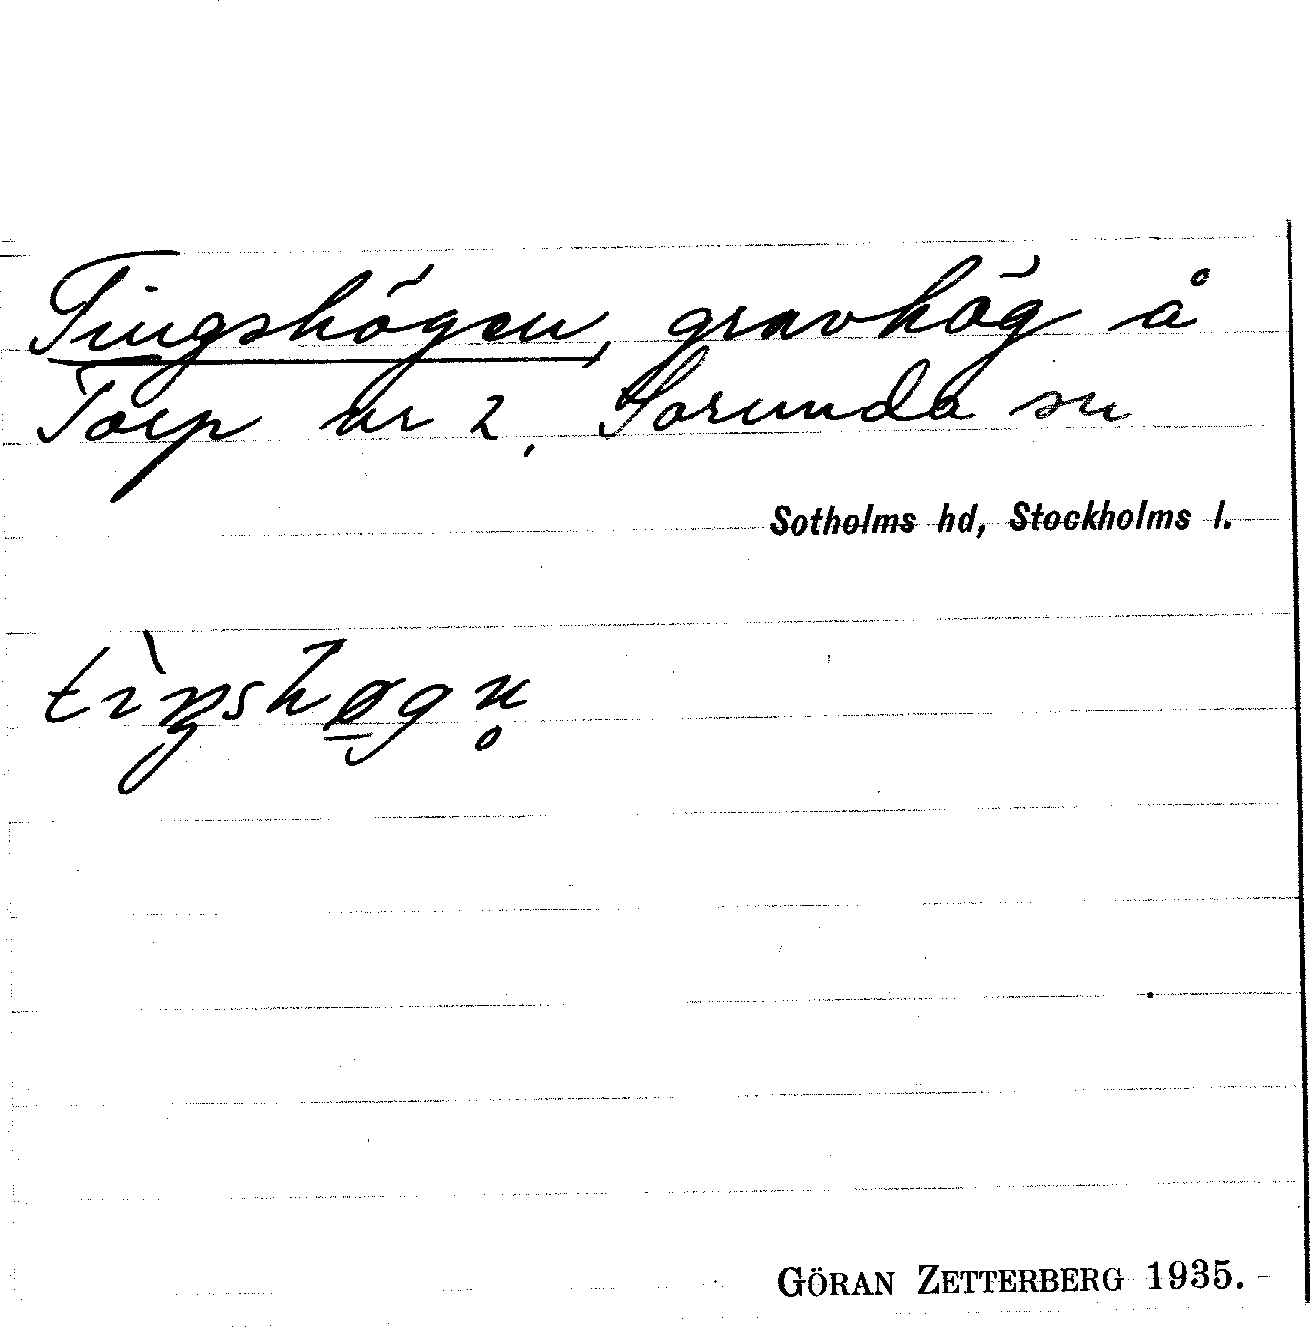 Tingshögen, gravhög å
Torp nr 2, Sorunda sn
Sotholms hd, Stockholms l.
tìŋshø̠gn̥
GÖRAN ZETTERBERG 1935.